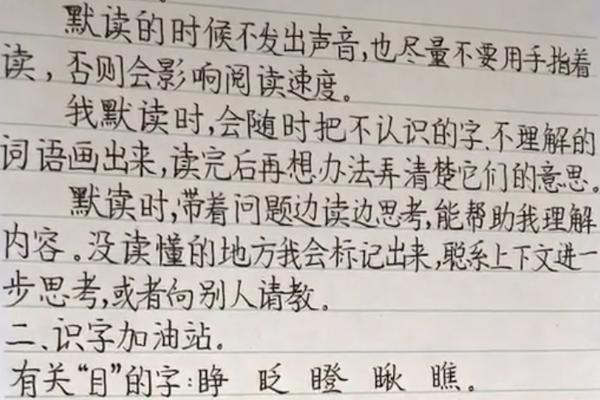 默读的时候不发出声音,也尽量不要用手指着
读,否则会影响阅读速度。
我默读时,会随时把不认识的字、不理解的
词语画出来,读完后再想办法弄清楚它们的意思。
默读时,带着问题边读边思考,能帮助我理解
内容。没读懂的地方我会标记出来,联系上下文进一
步思考,或者向别人请教。
二、识字加油站。
有关“目”的字:睁 眨 瞪 瞅 瞧。